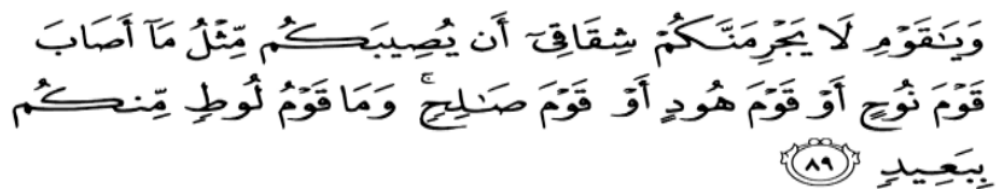 وَيَـٰقَوْمِ لَا يَجْرِمَنَّكُمْ شِقَاقِىٓ أَن يُصِيبَكُم مِّثْلُ مَآ أَصَابَ
قَوْمَ نُوحٍ أَوْ قَوْمَ هُودٍ أَوْ قَوْمَ صَـٰلِحٍ ۚ وَمَا قَوْمُ لُوطٍ مِّنكُم
بِبَعِيدٍ ٨٩